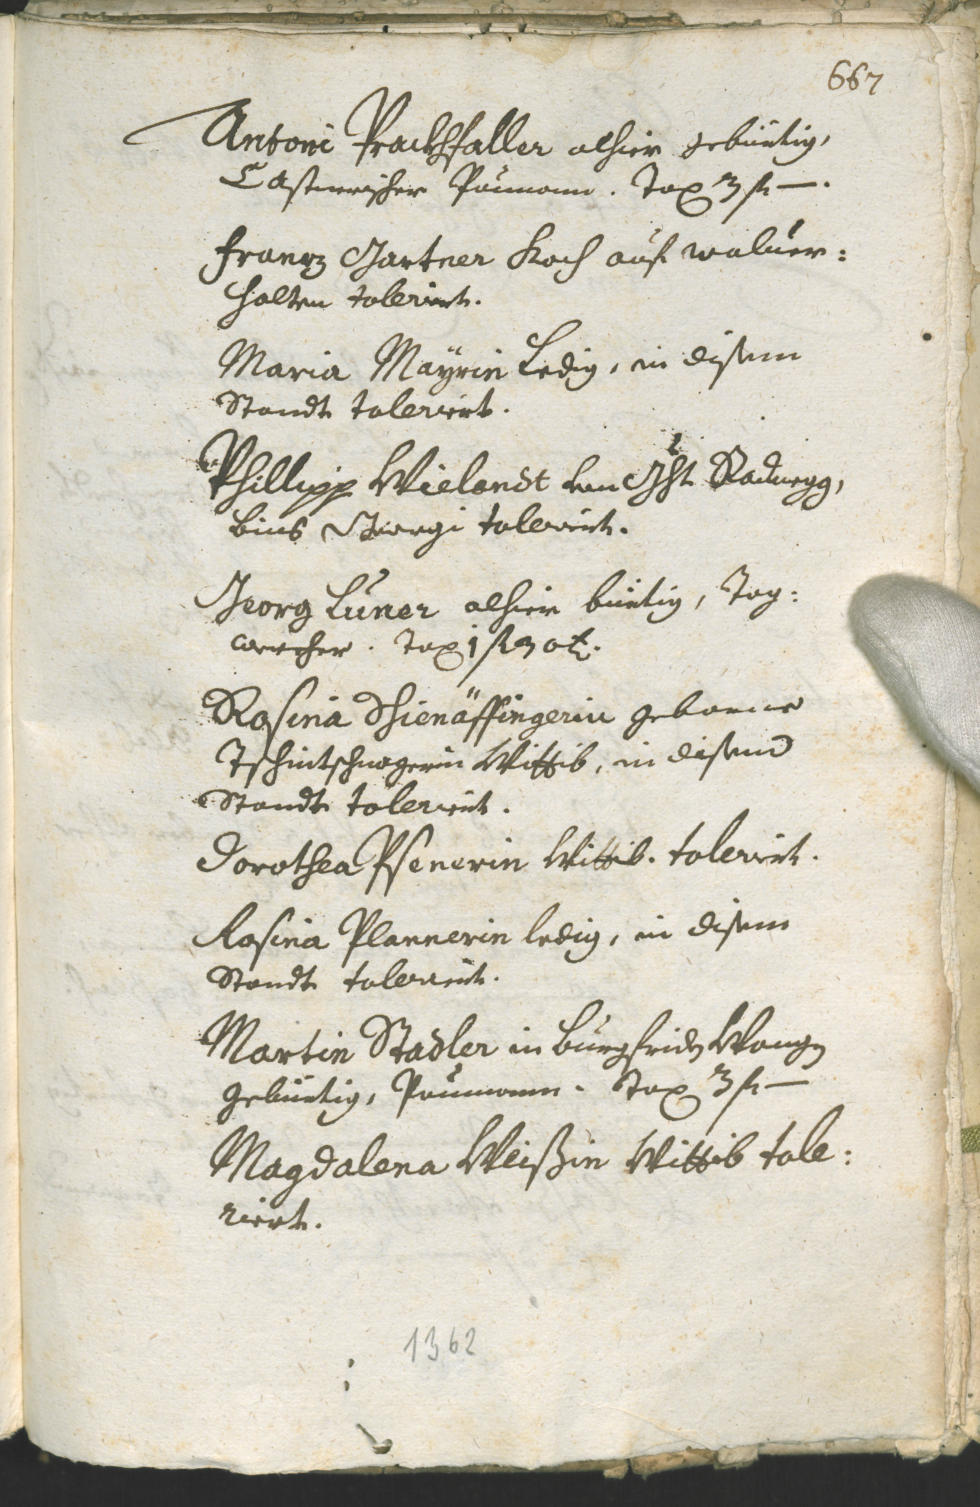 667
Antoni Prackhfaller alhier gebürtig,
Casten Paumann. Tax 3 fl —.
Frantz Gartner Koch auf woluer:
halten toleriert.
Maria Mayrin Ledig, in disem
Standt toleriert.
Phillipp Wielandt vom Ght. Rodnegg,
bius Georgi toleriert.
Georg Luner alhier bürtig, Tag:
wercher. Tax 1 fl 30 kr.
Rosina Thienäffingerin geborne
Tschintschnagerin Wittib, in disem
Standt toleriert.
Dorothea Psenerin Wittib. toleriert.
Rosina Plannerin ledig, in disem
Standt toleriert.
Martin Stadler in Burgfridn Wangn
gebürtig, Paumann. Tax 3 fl —
Magdalena Weißin Wittib tole:
riert.
1362